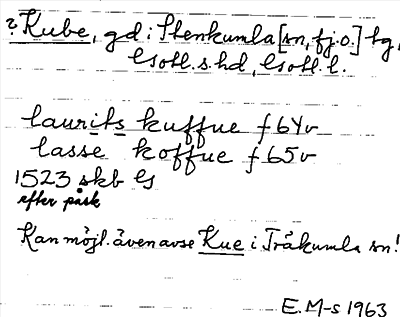 ? Kube, gd i Stenkumla [sn, fj.o.] hg,
Gotl. s. hd, Gotl. l.
laurits kuffue f 64v
lasse koffue f 65v
1523 skb G
efter påsk
Kan möjl. även avse Kue i Träkumla sn!
E. M-s 1963